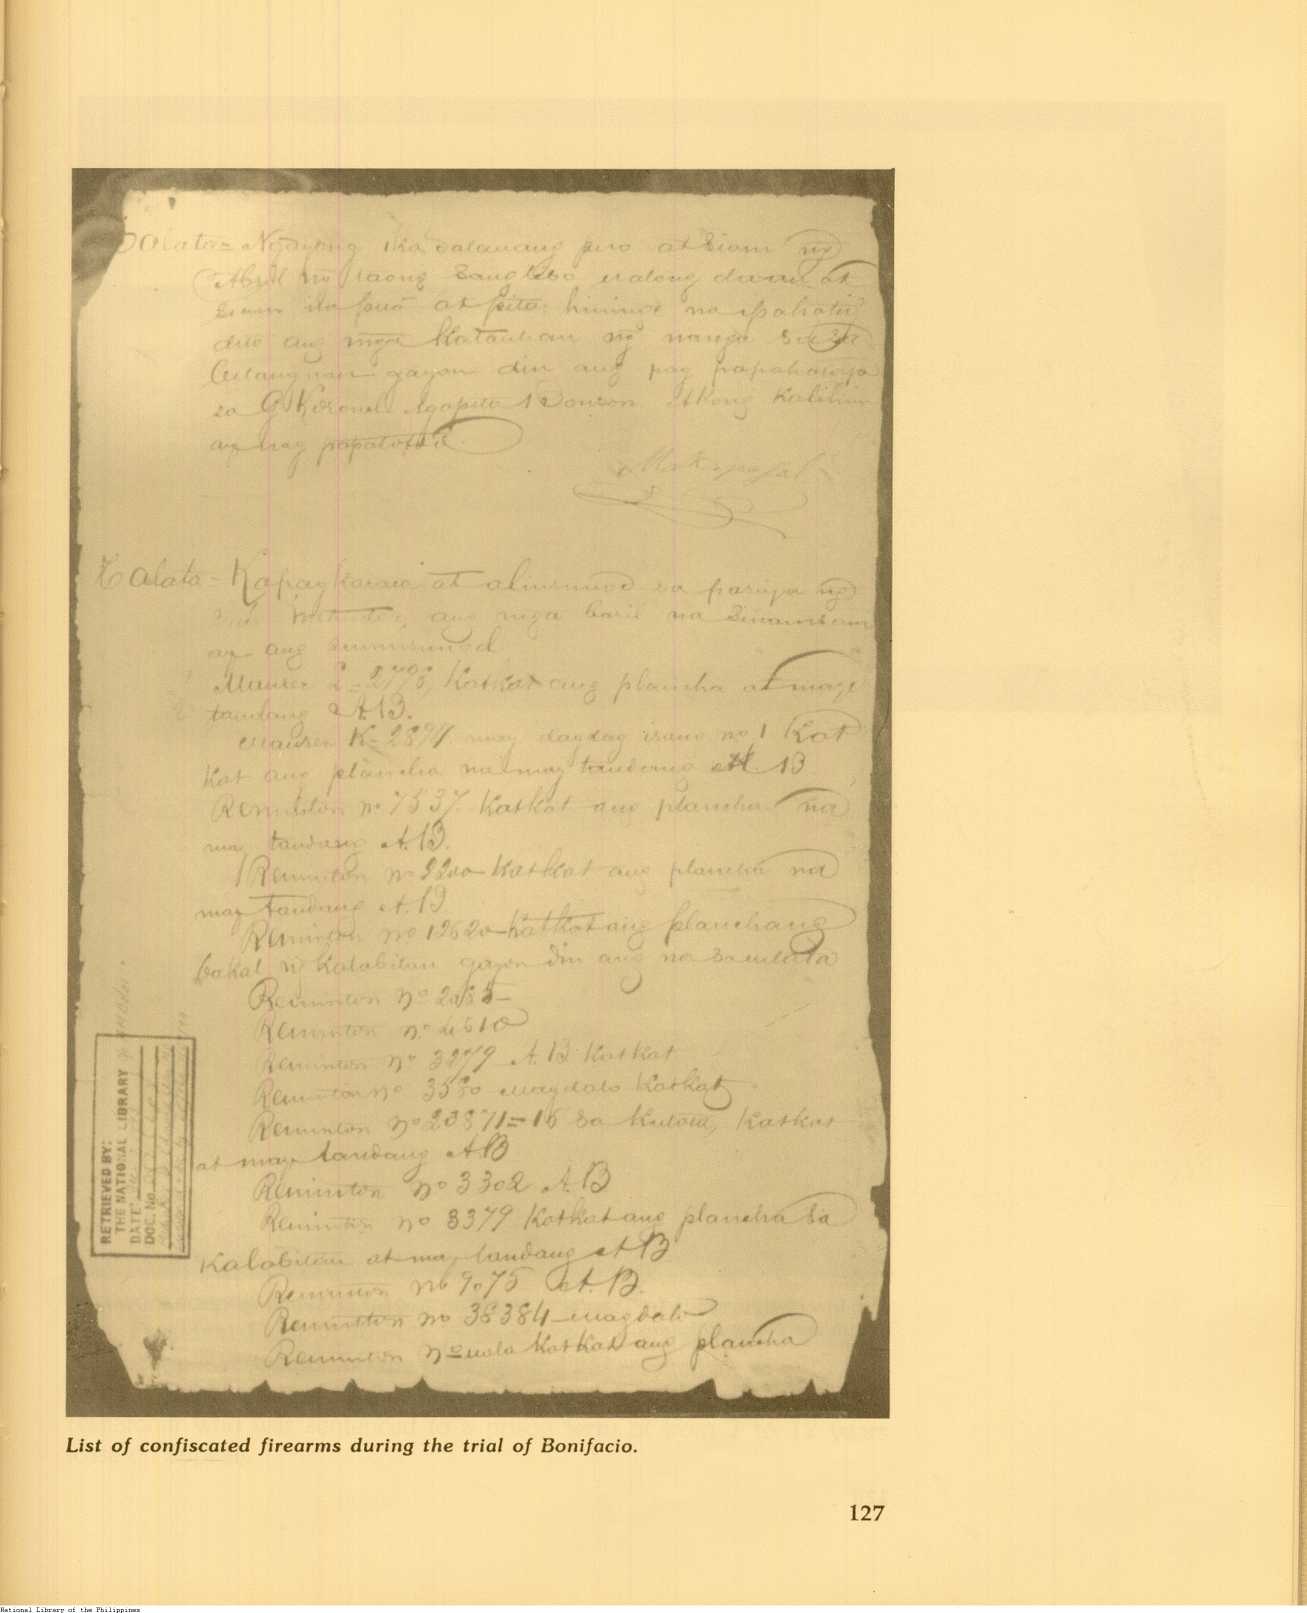 Talata = Ngayong ika dalauang puo at siam ng
Abril ng taong sanglibo ualong daan at
siam na puo at pito: hininge na ipahatid
dito ang mga Katauhan ng nanga
gayon din ang pag papahasiya
sa G. Koronel Agapito Bonson Akong Kalihim
ay nag papatotoo
Makapagal
Talata - Kapagkaraia at alinsunod sa pasiya ng
ang mga baril na sinamsam
ay ang sumusunod
Mauser L = 2778, Katkat ang plancha at may
tandang A. B.
Mauser K = 2897 may dagdag isang no 1 Kat
kat ang plancha na may tandang A. B
Reminton no 7537 Katkat ang plancha na
may tandang A. B.
Reminton no 2200 Katkat ang plancha na
may tandang A. B
Reminton no 12620 Katkat ang planchang
bakal ng Kalabitan gayon din ang na sa
Reminton No
Reminton no 4610
Reminton no 3279 A. B Katkat
Reminton no Magdalo Katkat
Reminton No 23871 = 15 sa Katkat
at may tandang A. B
Reminton no 3302 A. B
Reminton no 3379 Katkat ang plancha sa
Kalabitan at may tandang A B
Reminton no 9075 A. B.
Reminton no 38384 Magdalo
Reminton No wala Katkat ang plancha
RETRIEVED BY:
THE NATIONAL LIBRARY
DATE:
DOC. No.
List of confiscated firearms during the trial of Bonifacio.
127
National Library of the Philippines